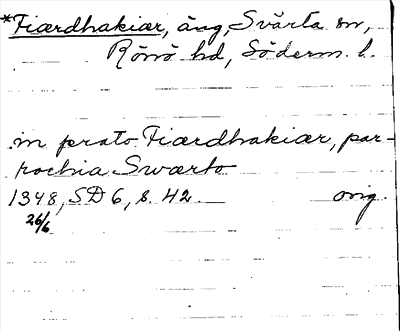 *Fiærdhakiær, äng, Svärta sn,
Rönö hd, Söderm. l.
in prato Fiærdhakiær, par-
rochia Swærto
1348, SD 6, s. 42 orig.
26/6